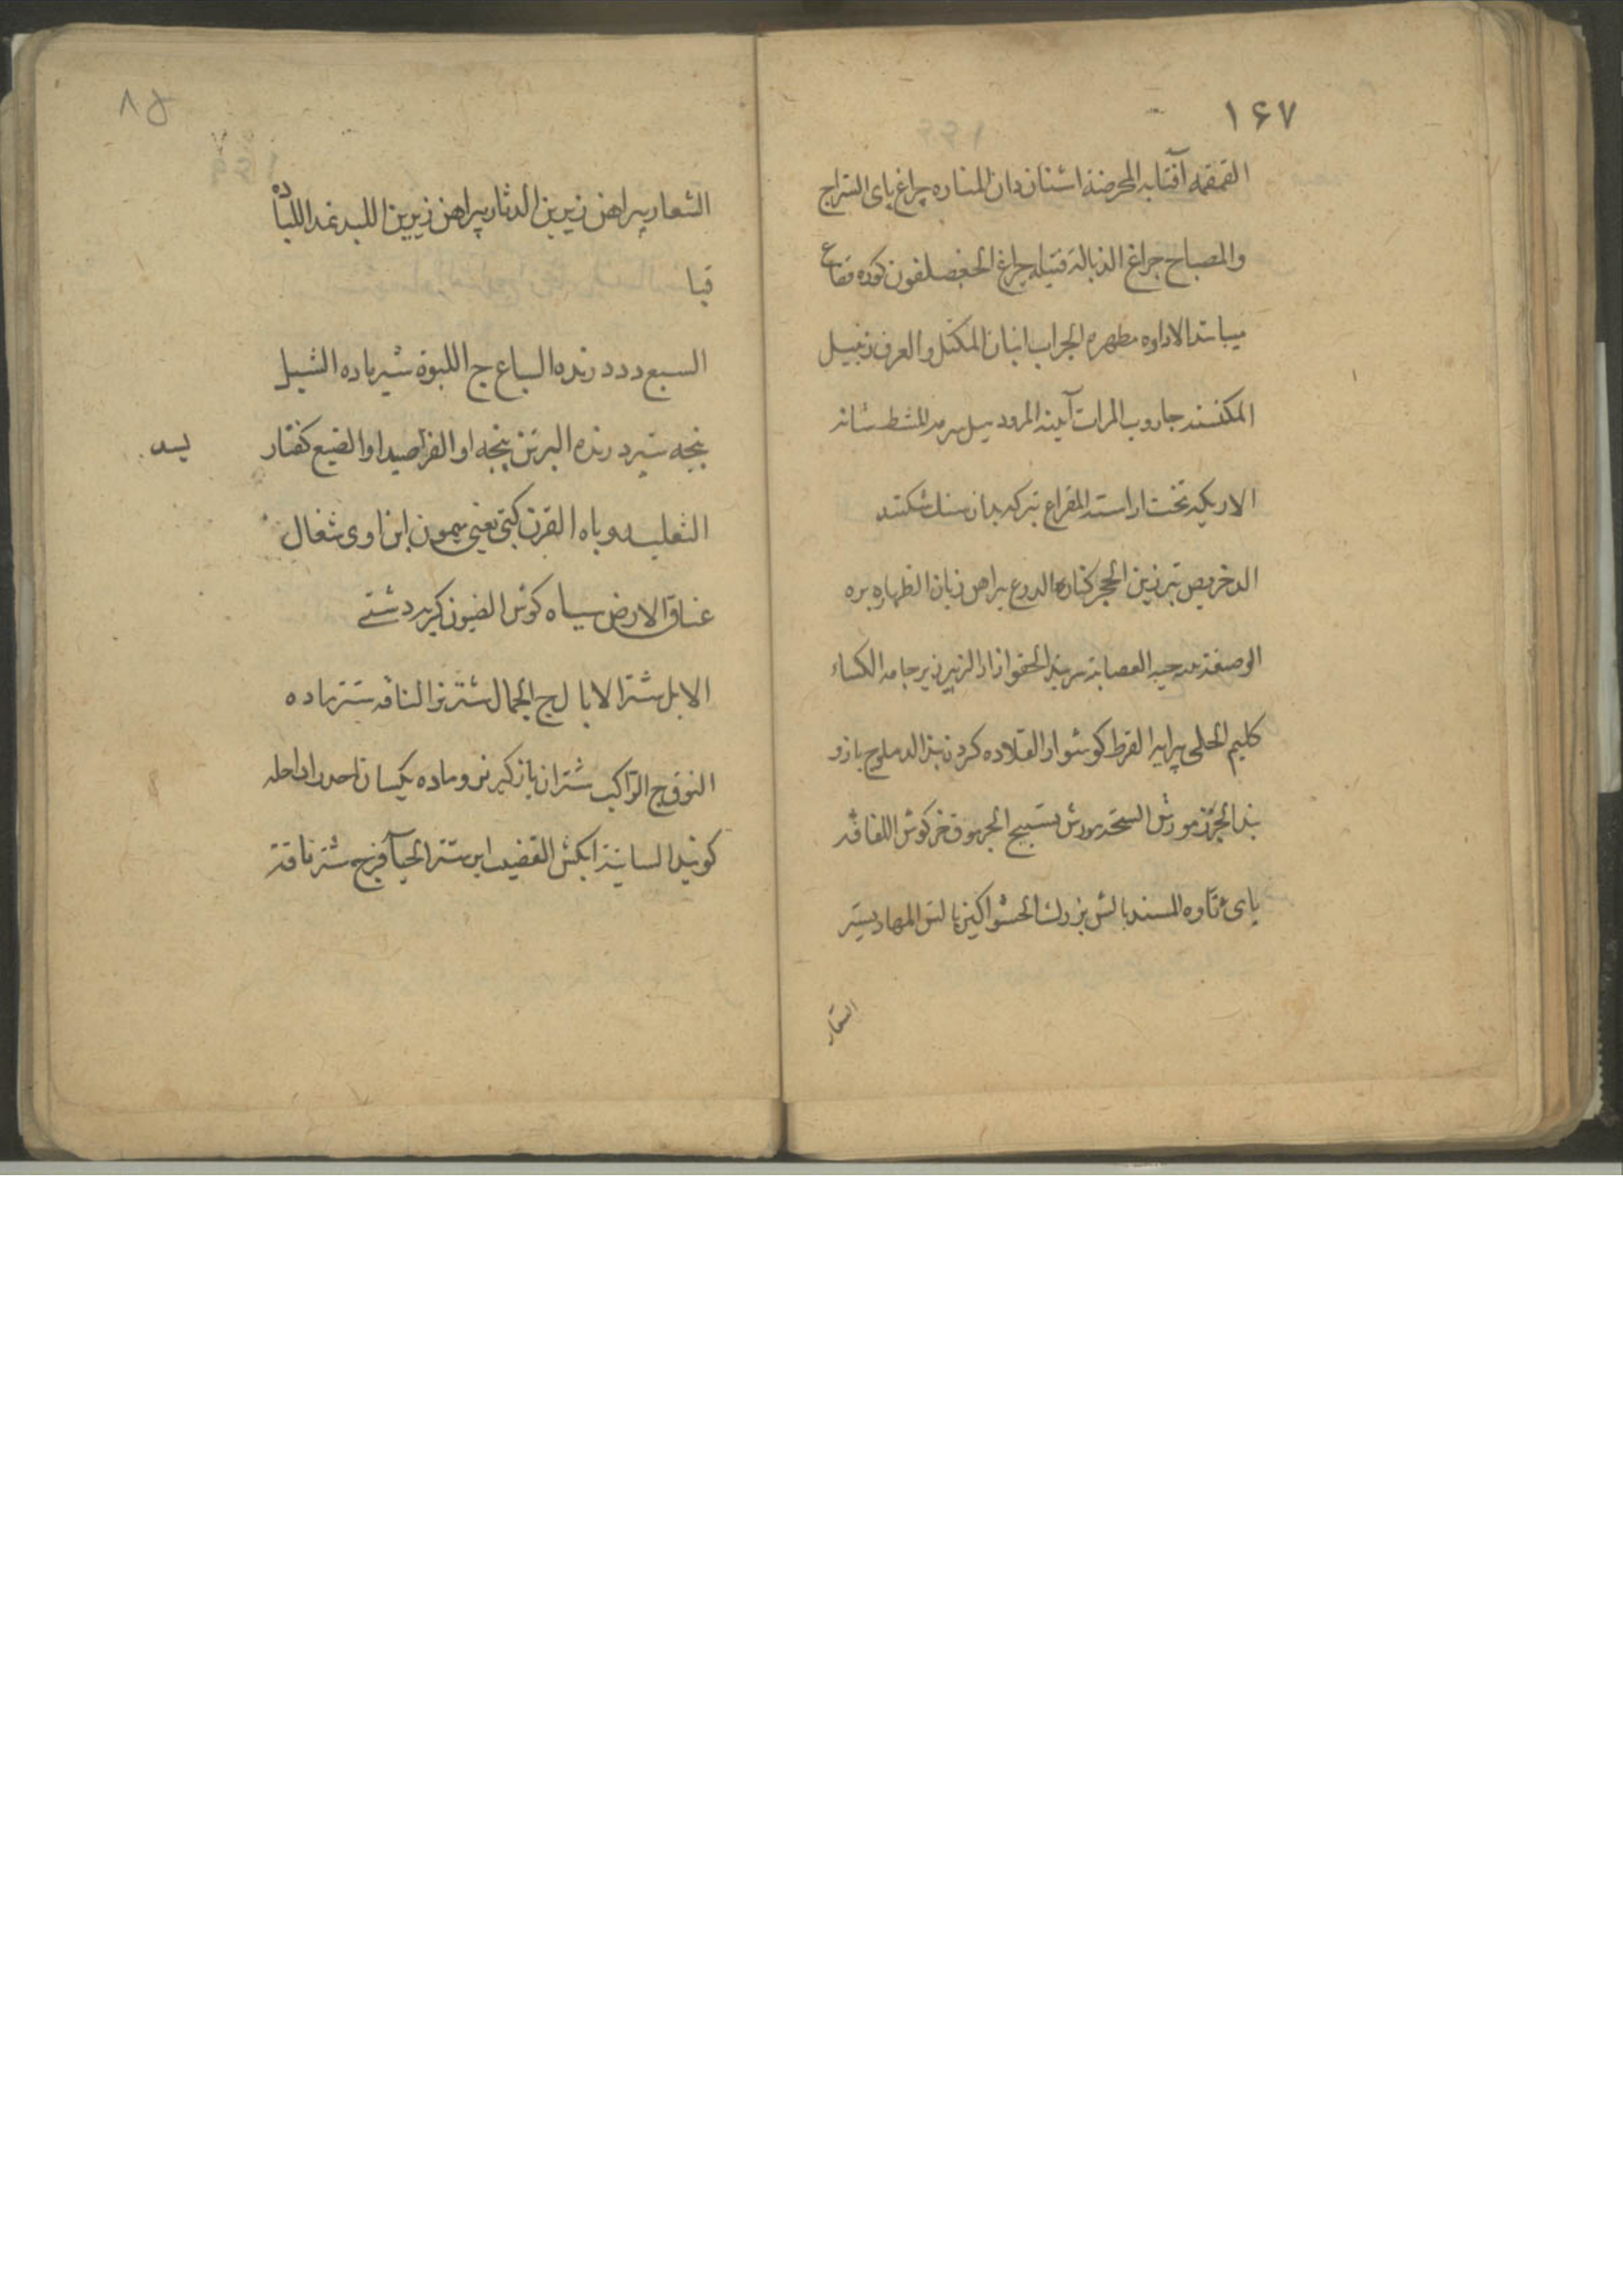 ۱۶۷
القمقمه آفتابه المحرضة اشنان دان المناره چراغ پای السراج
والمصباح چراغ الذبالة فتیله چراغ کوده فقاع
میباشد الاداوه مطهره الجراب انبان المکتل والعرف زنبیل
المکنسه جاروب المرات آینه المرود میل سرمه المشط شانه
الاریکه تخت اراسته المقراع تبر که بدان سنک شکنند
الدخریص تبرزین کناره الدرع پیراهن زنان الظهاره بره
العصابة سربند الحقو ازار الزیر زیر جامه الکساء
کلیم الحلی پرایه القرط کوشوار القلاده کردن بند الدملوج بازو
بند تسبیح الجرموق خرکوش اللفافه
پای تاوه المسند بالش بزرك الحشو اکین بالش المهاد بستر
الشعار
۸۵
الشعار پیراهن زیرین الدثار پیراهن زیرین اللبد نمد اللباده
قبا
السبع دد درنده السباع ج اللبوة شیر ماده الشبل
بچه شیر درنده البرثن پنجه او الفراصید او الضبع کفتار
الثعلب روباه القرن کبی یعنی میمون ابن اوی شغال
عناق الارض سیاه کوش الضیون کربه دشتی
الابل شتر الابال ج الجمال شتر نر الناقه شتر ماده
النوق ج الراکب شتران بازکیر نر و ماده یکسان احد راحله
کویند السانیة ابکش القضیب ایر شتر الحیاء فرج شتر ناقة